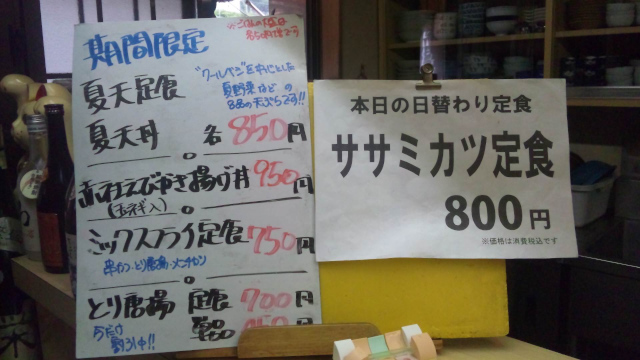 期間限定
夏天定食
夏野菜などの
8品の天ぷらです!!
夏天丼 各850円
えびかき揚げ丼 950円
(玉ネギ入)
ミックスフライ定食 750円
串カツ・とり唐揚・メンチカツ
とり唐揚 定食 700円
単品
今だけ
割引中!!
本日の日替わり定食
ササミカツ定食
800円
※価格は消費税込です